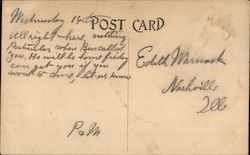 Wednesday 18th
POST CARD
All right here, nothing
Particular when Ben called
You. He will be home friday
Can get you if you
want to come, let us know
P & M
Edith Warnock
Nashville
Ills